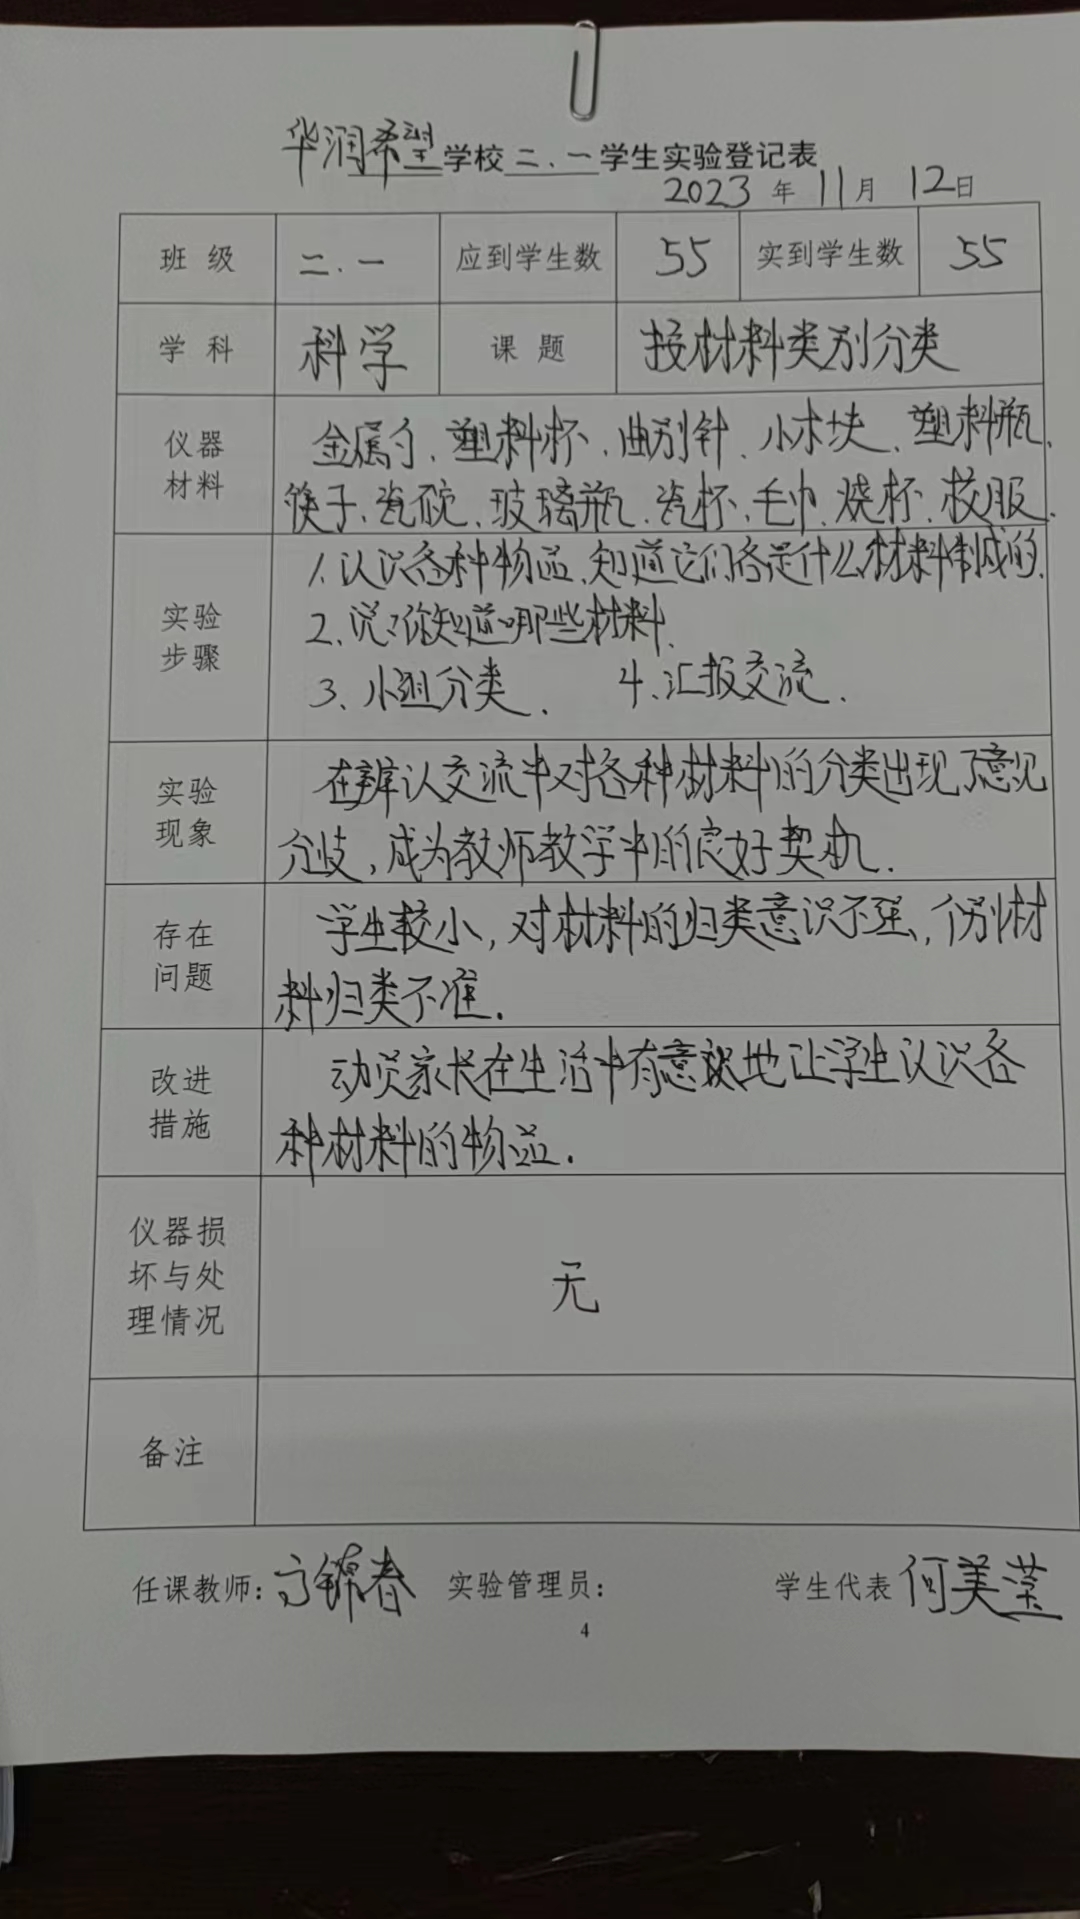 华润希望学校二.一学生实验登记表
2023年11月12日
班级 二.一 应到学生数 55 实到学生数 55
学科 科学 课题 按材料类别分类
仪器
材料
金属勺、塑料杯、曲别针、小木块、塑料瓶、
筷子、瓷碗、玻璃瓶、瓷杯、毛巾、烧杯、校服.
实验
步骤
1.认识各种物品,知道它们各是什么材料制成的.
2、说说你知道哪些材料.
3、小组分类. 4、汇报交流.
实验
现象
在辨认交流中对各种材料的分类出现了意见
分歧,成为教师教学中的良好契机.
存在
问题
学生较小,对材料的归类意识不强,个别材
料归类不准.
改进
措施
动员家长在生活中有意识地让学生认识各
种材料的物品.
仪器损
坏与处
理情况
无
备注
任课教师:方锦春 实验管理员: 学生代表 何美莹
4